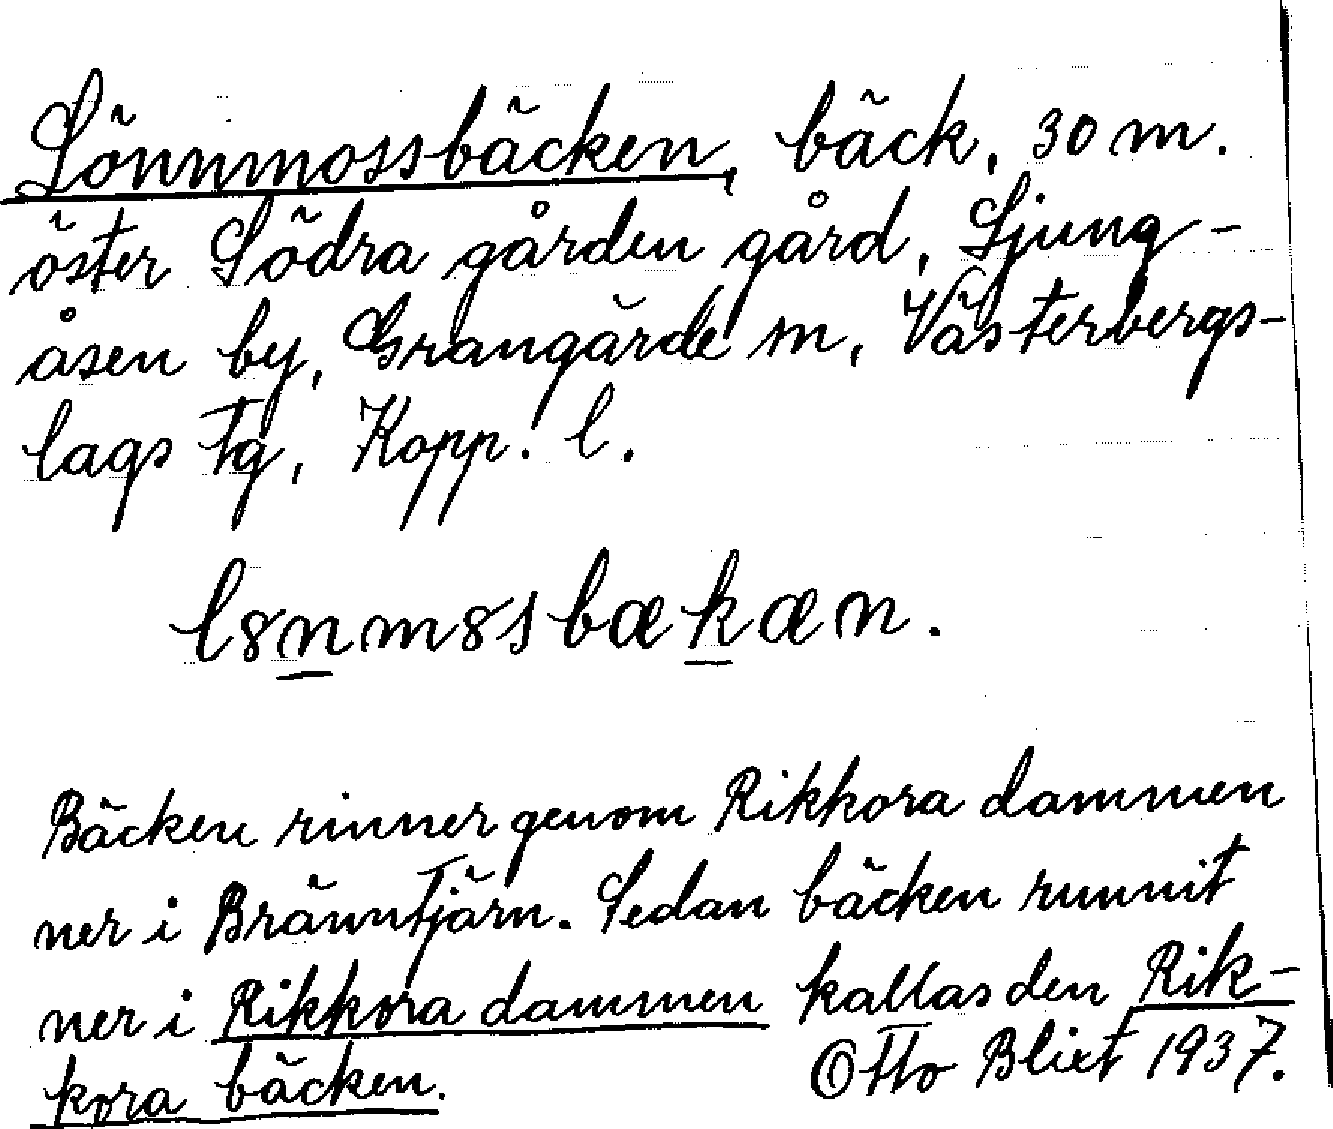 Lönnmossbäcken, bäck, 30 m.
öster Södra gården gård, Ljung-
åsen by, Grangärde m, Västerbergs-
lags tg, Kopp. l.
l8nm8sbækæn.
Bäcken rinner genom Rikkora dammen
ner i Bränntjärn. Sedan bäcken runnit
ner i Rikkora dammen kallas den Rik-
kora bäcken. Otto Blixt 1937.